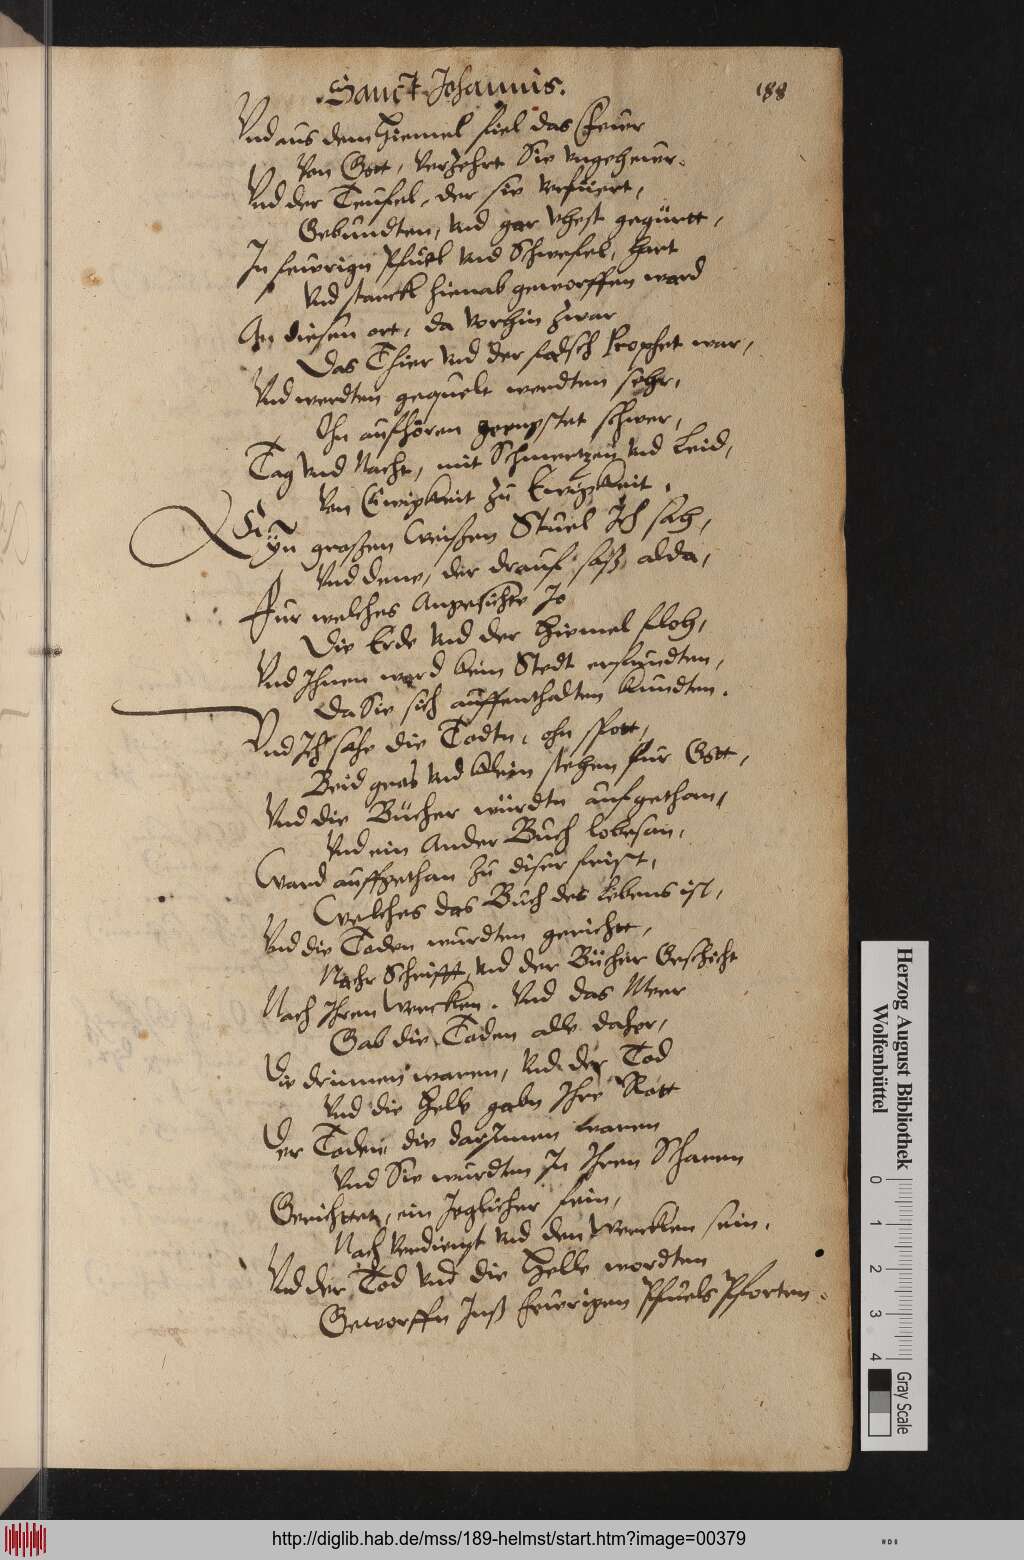 Sanct Johannis.
188
Vnd aus dem Hiemel fiel das Feuer
Von Gott, Verzehrt Sie vngeheuer.
Vnd der Teufel, der sie verfüert,
Gebundten, vnd gar vhest gegürtt,
In feurign Pfuel vnd Schwefel, hart
Vnd starck hienab geworffen ward
An diesen ort, da vorhin zwar
Das Thier vnd der falsch Prophet war,
Vnd werdten gequelt werdten sehr,
Ohn aufhören geengstet schwer,
Tag vnd Nacht, mit Schmertzen vnd Leid,
Von Ewigkeit zu Ewigkeit.
Eyn großen Weißen Stuel Ich sah,
Vnd denn, der drauf saß alda,
Fur welches Angesichte Jo
Die Erde vnd der Hiemel floh,
Vnd Ihnen ward kein Stedt erfundten,
Da Sie sich auffenthalten kundten.
Vnd Ich sahe die Todtn, ohn spott,
Beid gros vnd klein stehen fur Gott,
Vnd die Bücher würdtn aufgethan,
Vnd ein Ander Buch lobesan,
Ward auffgethan zu diser frist,
Welches das Buch des Lebens ist,
Vnd die Toden wurdten gerichtt,
Nach Schrifft, vnd der Bücher Geschicht
Nach Ihren Wercken. Vnd das Meer
Gab die Toden alle daher,
Die drinnen waren, vnd der Tod
Vnd die Helle gabn Ihre Rott
Der Toden die darinnen waren
Vnd Sie wurdten In Ihren Scharen
Gerichttet, ein Jeglicher fein,
Nach Verdienst vnd den Wercken sein.
Vnd der Tod vnd die Helle wordten
Geworffn Inß feurigen Pfuels Pforten.
Herzog August Bibliothek
Wolfenbüttel
0 1 2 3 4
Gray Scale
http://diglib.hab.de/mss/189-helmst/start.htm?image=00379